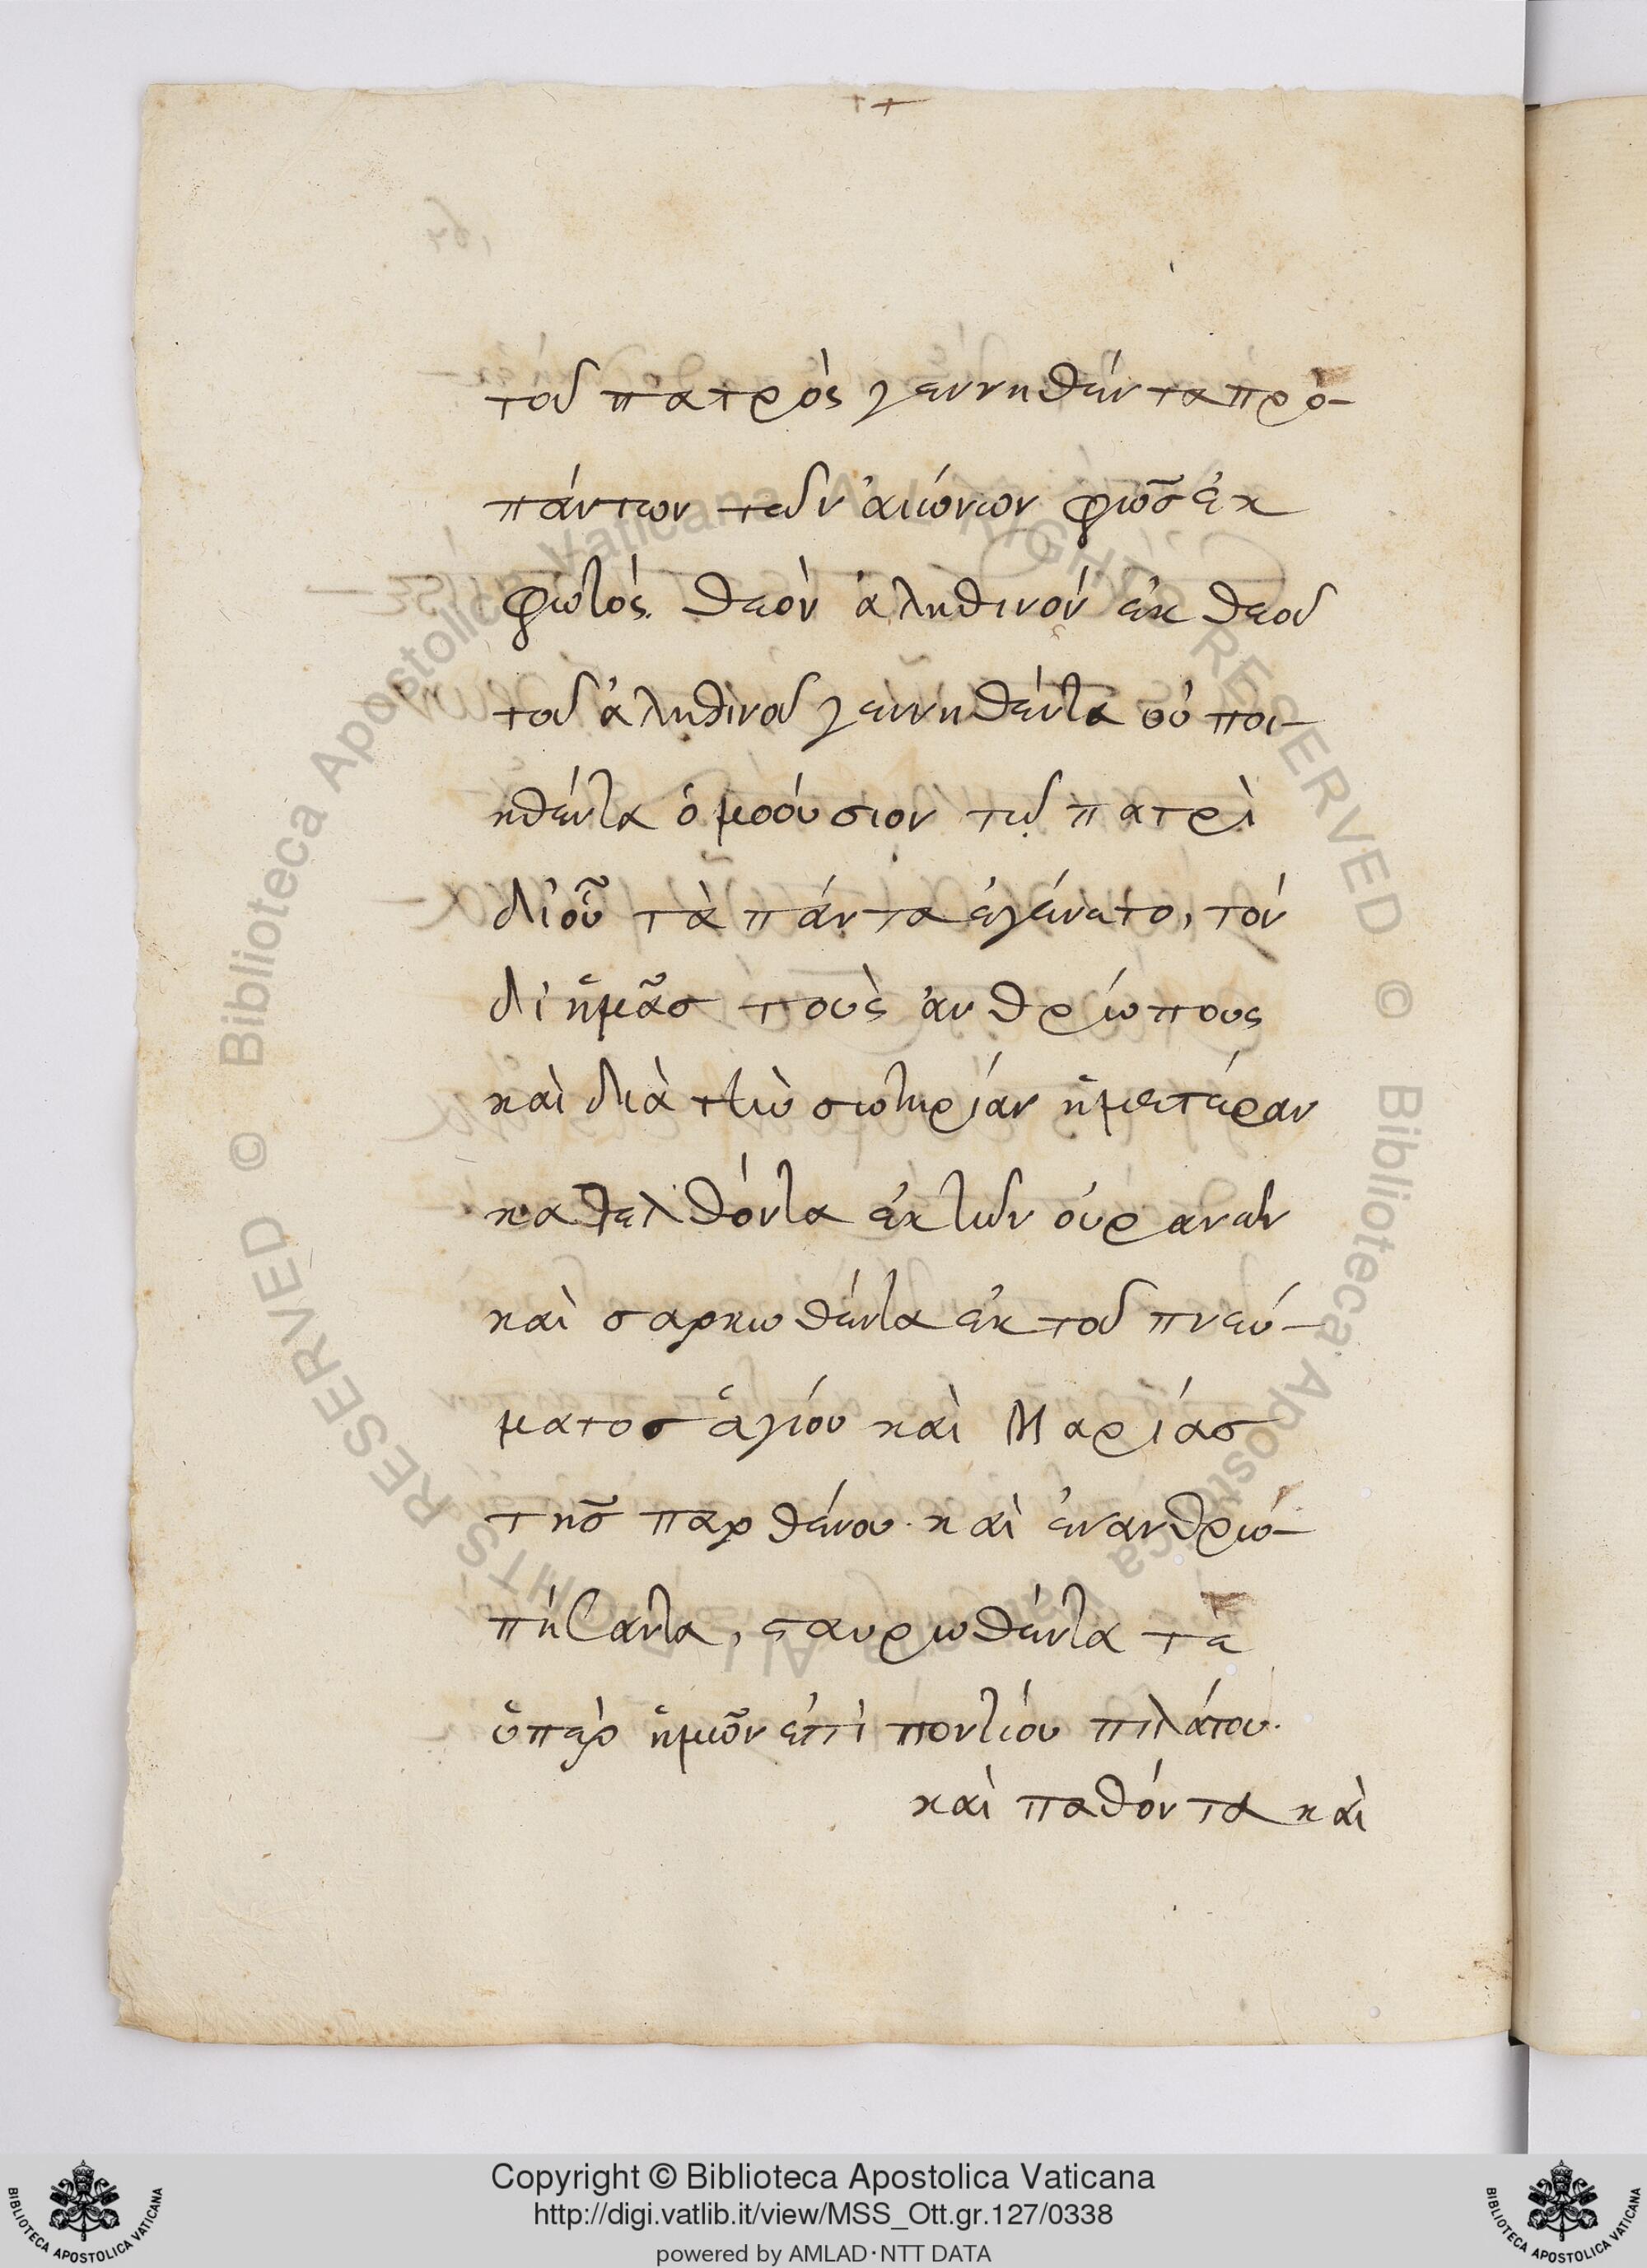 τοῦ πατρὸς γεννηθέντα πρὸ-
πάντων τῶν ἀιώνων φῶσ ἐκ
φωτός. θεὸν ἀληθινόν ἐκ θεοῦ
τοῦ ἀληθινοῦ γεννηθέντα οὐ ποι-
ηθέντα ὁμοόυσιον τῷ πατρὶ
δι οὗ τὰ πάντα ἐγένετο, τόν
δι ἡμᾶσ τοὺς ἀνθρώπους
καὶ διὰ τὴν σωτηρίαν ἡμετέραν
κατελθόντα ἐκ τῶν ὀυρανῶν
καὶ σαρκωθέντα ἐκ τοῦ πνεύ-
ματοσ ἁγίου καὶ Μαρίασ
τῆσ παρθένου. καὶ ἐνανθρω-
πήσαντα, σταυρωθέντα τὲ
ὑπὲρ ἡμῶν ἐπὶ ποντίου πιλάτου.
καὶ παθόντα καὶ
Copyright © Biblioteca Apostolica Vaticana
http://digi.vatlib.it/view/MSS_Ott.gr.127/0338
powered by AMLAD·NTT DATA
BIBLIOTECA APOSTOLICA VATICANA
BIBLIOTECA APOSTOLICA VATICANA